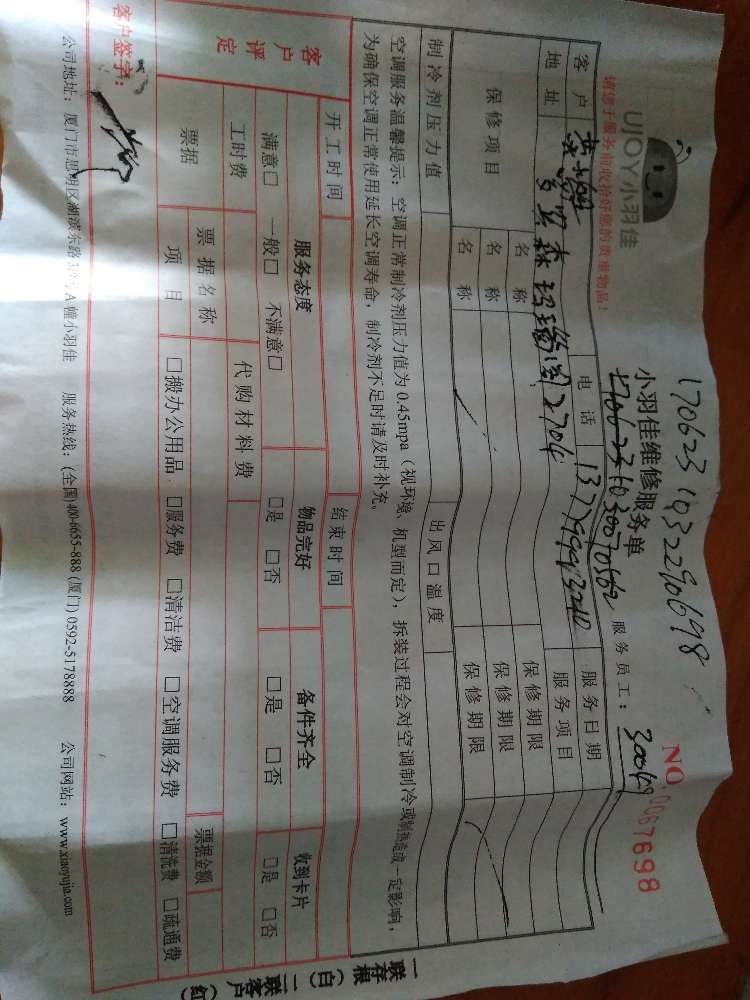 UJOY小羽佳
请您于服务前收拾好您的贵重物品!
170623 1032290698
小羽佳维修服务单
NO. 0067698
服务员工: 300419
客户 电话 服务日期
地址 2704 服务项目
保修项目 名称 保修期限
名称 保修期限
名称 保修期限
制冷剂压力值 出风口温度
空调服务温馨提示:空调正常制冷剂压力值为0.45mpa(视环境、机型而定),拆装过程会对空调制冷或制热造成一定影响,
为确保空调正常使用延长空调寿命,制冷剂不足时请及时补充。
开工时间 结束时间
客户评定 服务态度 物品完好 备件齐全 收到卡片
满意□ 一般□ 不满意□ □是 □否 □是 □否 □是 □否
工时费 代购材料费
票据 票据名称 票据金额
项目 □搬办公用品 □服务费 □清洁费 □空调服务费 □清洗费 □疏通费
客户签字:
公司地址:厦门市思明区湖滨东路319号A幢小羽佳 服务热线:(全国)400-6655-888 (厦门) 0592-5178888 公司网站:www.xiaoyujia.com
一联存根(白) 二联客户(红)